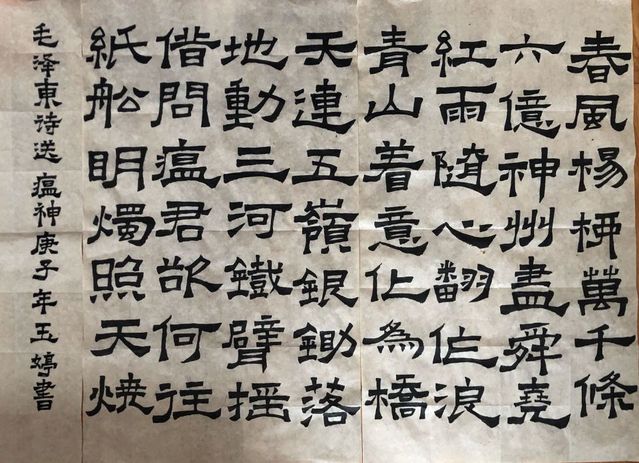 春風楊柳萬千條
六億神州盡舜堯
紅雨隨心翻作浪
青山着意化為橋
天連五嶺銀鋤落
地動三河鐵臂摇
借問瘟君欲何往
紙舩明燭照天焼
毛泽東诗送瘟神庚子年玉婷書